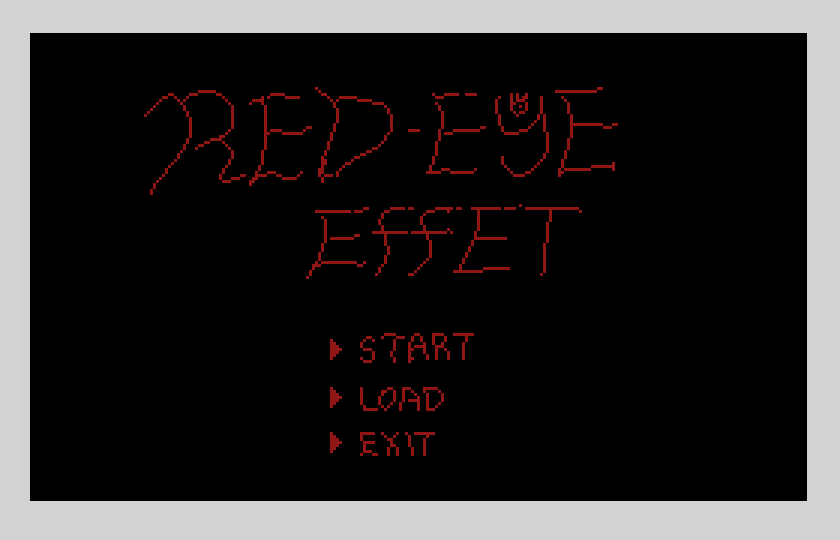 RED-EYE
EffET
START
LOAD
EXIT